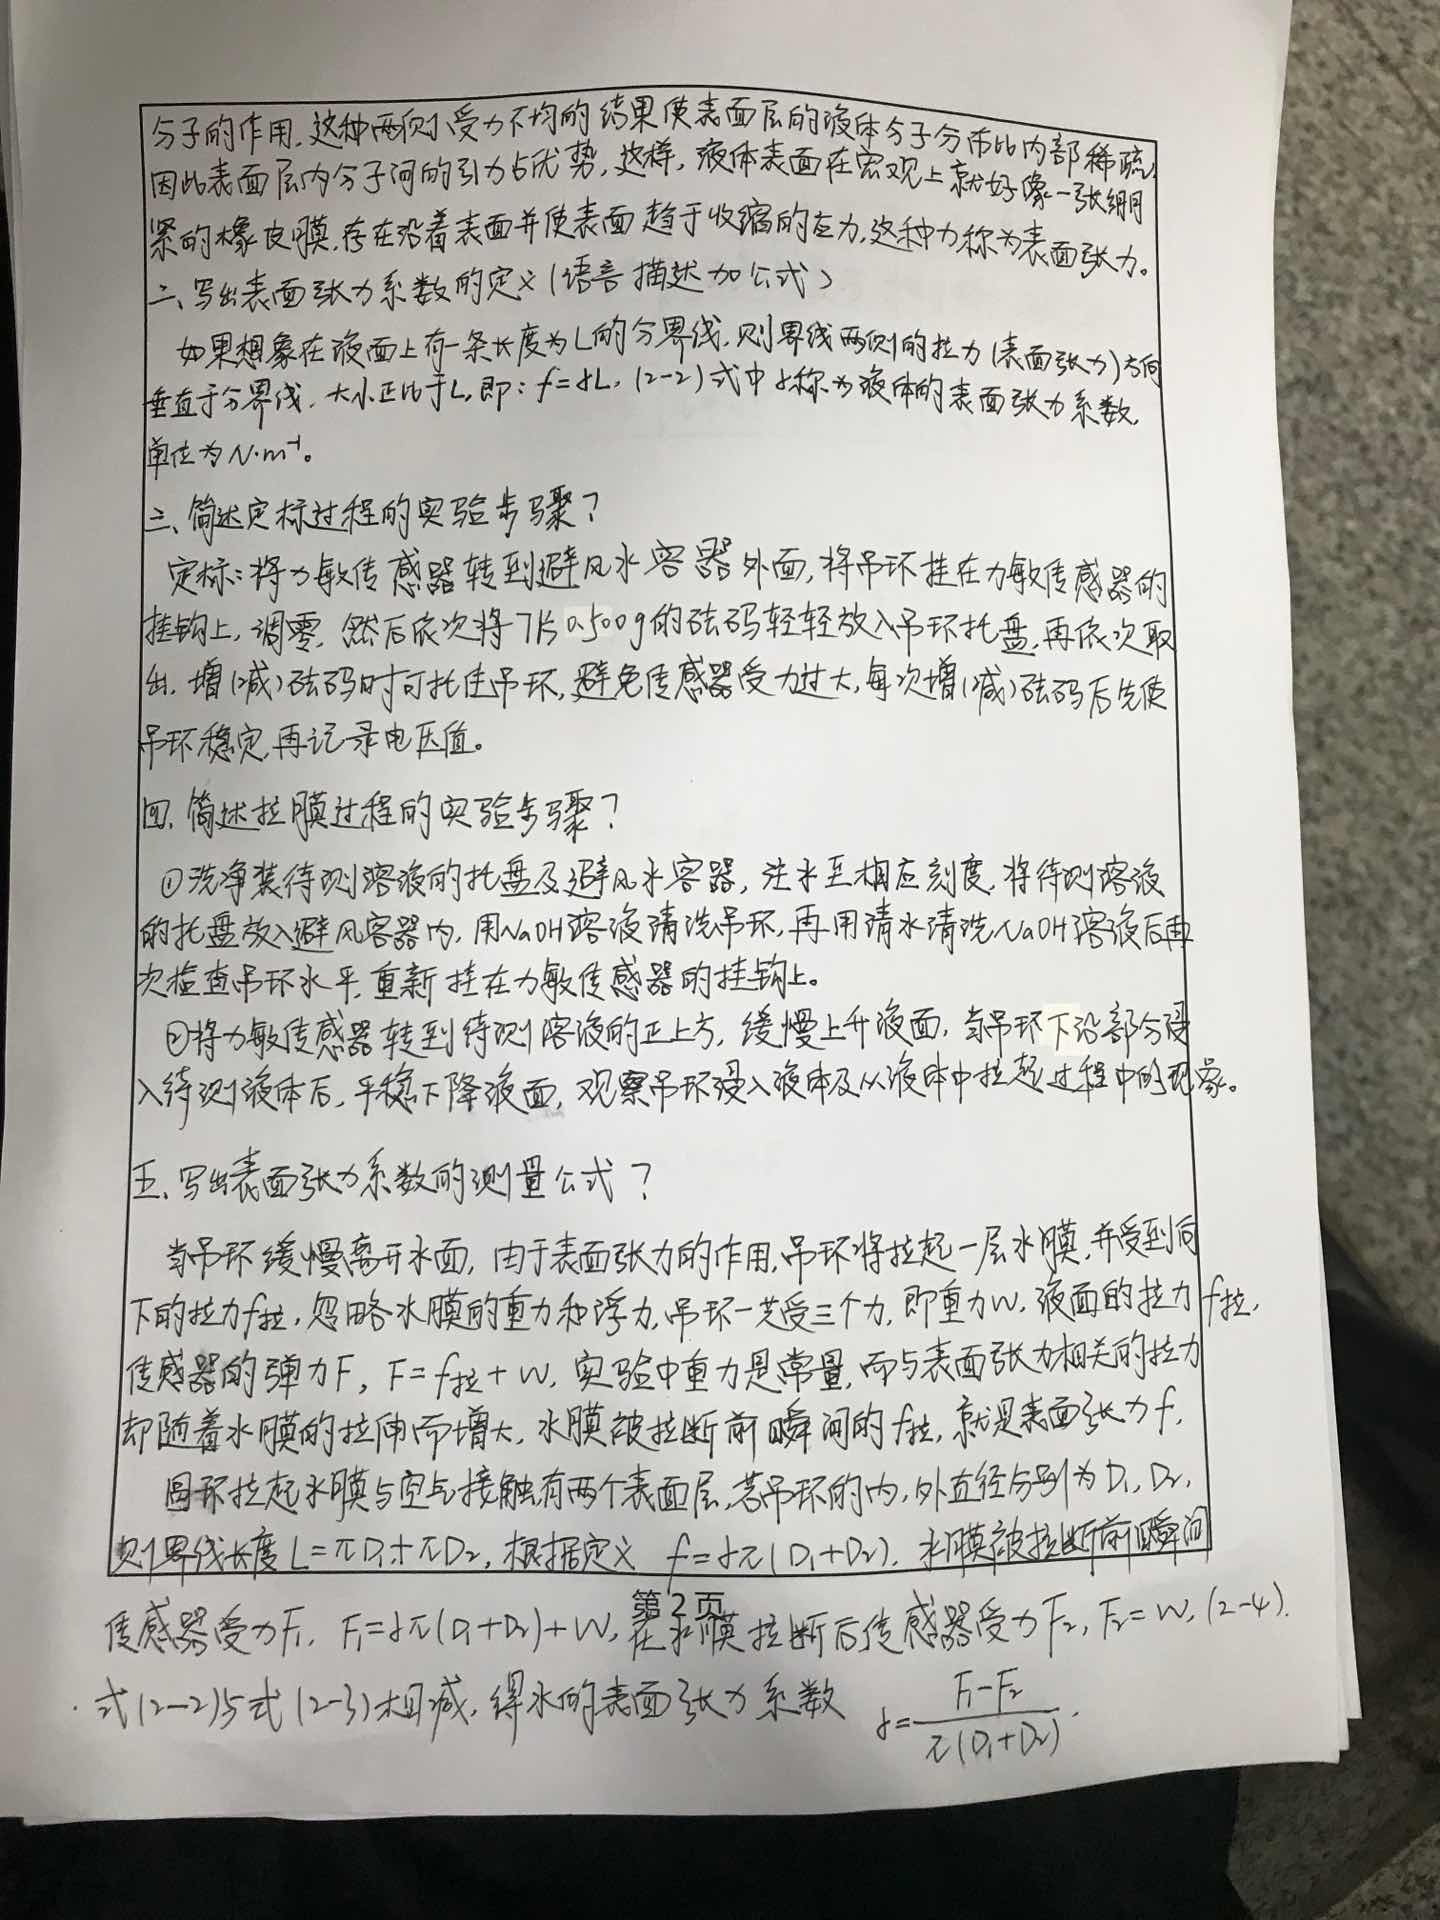 分子的作用.这种两侧受力不均的结果使表面层的液体分子分布比内部稀疏,
因此表面层内分子间的引力占优势,这样,液体表面在宏观上就好像一张绷
紧的橡皮膜,存在沿着表面并使表面趋于收缩的应力,这种力称为表面张力。
二、写出表面张力系数的定义(语言描述加公式)
如果想象在液面上有一条长度为L的分界线,则界线两侧的拉力(表面张力)方向
垂直于分界线,大小正比于L,即:f=γL,(2-2)式中γ称为液体的表面张力系数,
单位为N·m⁻¹。
三、简述定标过程的实验步骤?
定标:将力敏传感器转到避风水容器外面,将吊环挂在力敏传感器的
挂钩上,调零,然后依次将7片0.500g的砝码轻轻放入吊环托盘,再依次取
出,增(减)砝码时可托住吊环,避免传感器受力过大,每次增(减)砝码后先使
吊环稳定,再记录电压值。
四、简述拉膜过程的实验步骤?
①洗净装待测溶液的托盘及避风水容器,注水至相应刻度,将待测溶液
的托盘放入避风容器内,用NaOH溶液清洗吊环,再用清水清洗NaOH溶液后再
次检查吊环水平,重新挂在力敏传感器的挂钩上。
②将力敏传感器转到待测溶液的正上方,缓慢上升液面,当吊环下沿部分浸
入待测液体后,平稳下降液面,观察吊环浸入液体及从液体中拉起过程中的现象。
五、写出表面张力系数的测量公式?
当吊环缓慢离开水面,由于表面张力的作用,吊环将拉起一层水膜,并受到向
下的拉力f拉,忽略水膜的重力和浮力,吊环一共受三个力,即重力W,液面的拉力f拉,
传感器的弹力F,F=f拉+W,实验中重力是常量,而与表面张力相关的拉力
却随着水膜的拉伸而增大,水膜被拉断前瞬间的f拉,就是表面张力f,
圆环拉起水膜与空气接触有两个表面层,若吊环的内,外直径分别为D₁,D₂,
则界线长度L=πD₁+πD₂,根据定义 f=γπ(D₁+D₂).水膜被拉断前瞬间
第2页
传感器受力F₁,F₁=γπ(D₁+D₂)+W,在水膜拉断后传感器受力F₂,F₂=W,(2-4).
式(2-2)与式(2-3)相减,得水的表面张力系数 γ=(F₁-F₂)/π(D₁+D₂).